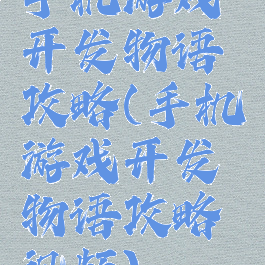 手机游戏
开发物语
攻略(手机
游戏开发
物语攻略
视频)